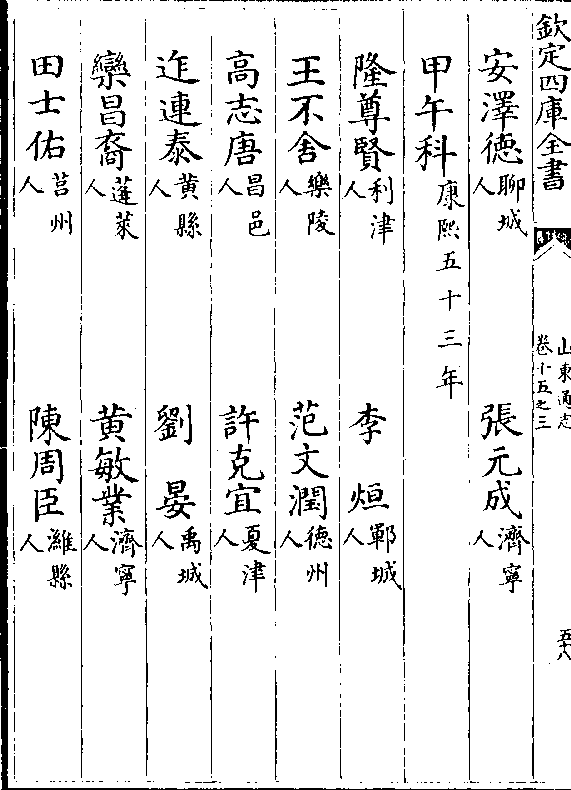 欽定四庫全書
山東通志
卷十五之三
五十八
安澤德聊城人 張元成濟寧人
甲午科康熙五十三年
隆尊賢利津人 李烜鄆城人
王不舍樂陵人 范文潤德州人
高志唐昌邑人 許克宜夏津人
迮連泰黃縣人 劉晏禹城人
欒昌裔蓬萊人 黃敏業濟寧人
田士佑莒州人 陳周臣濰縣人